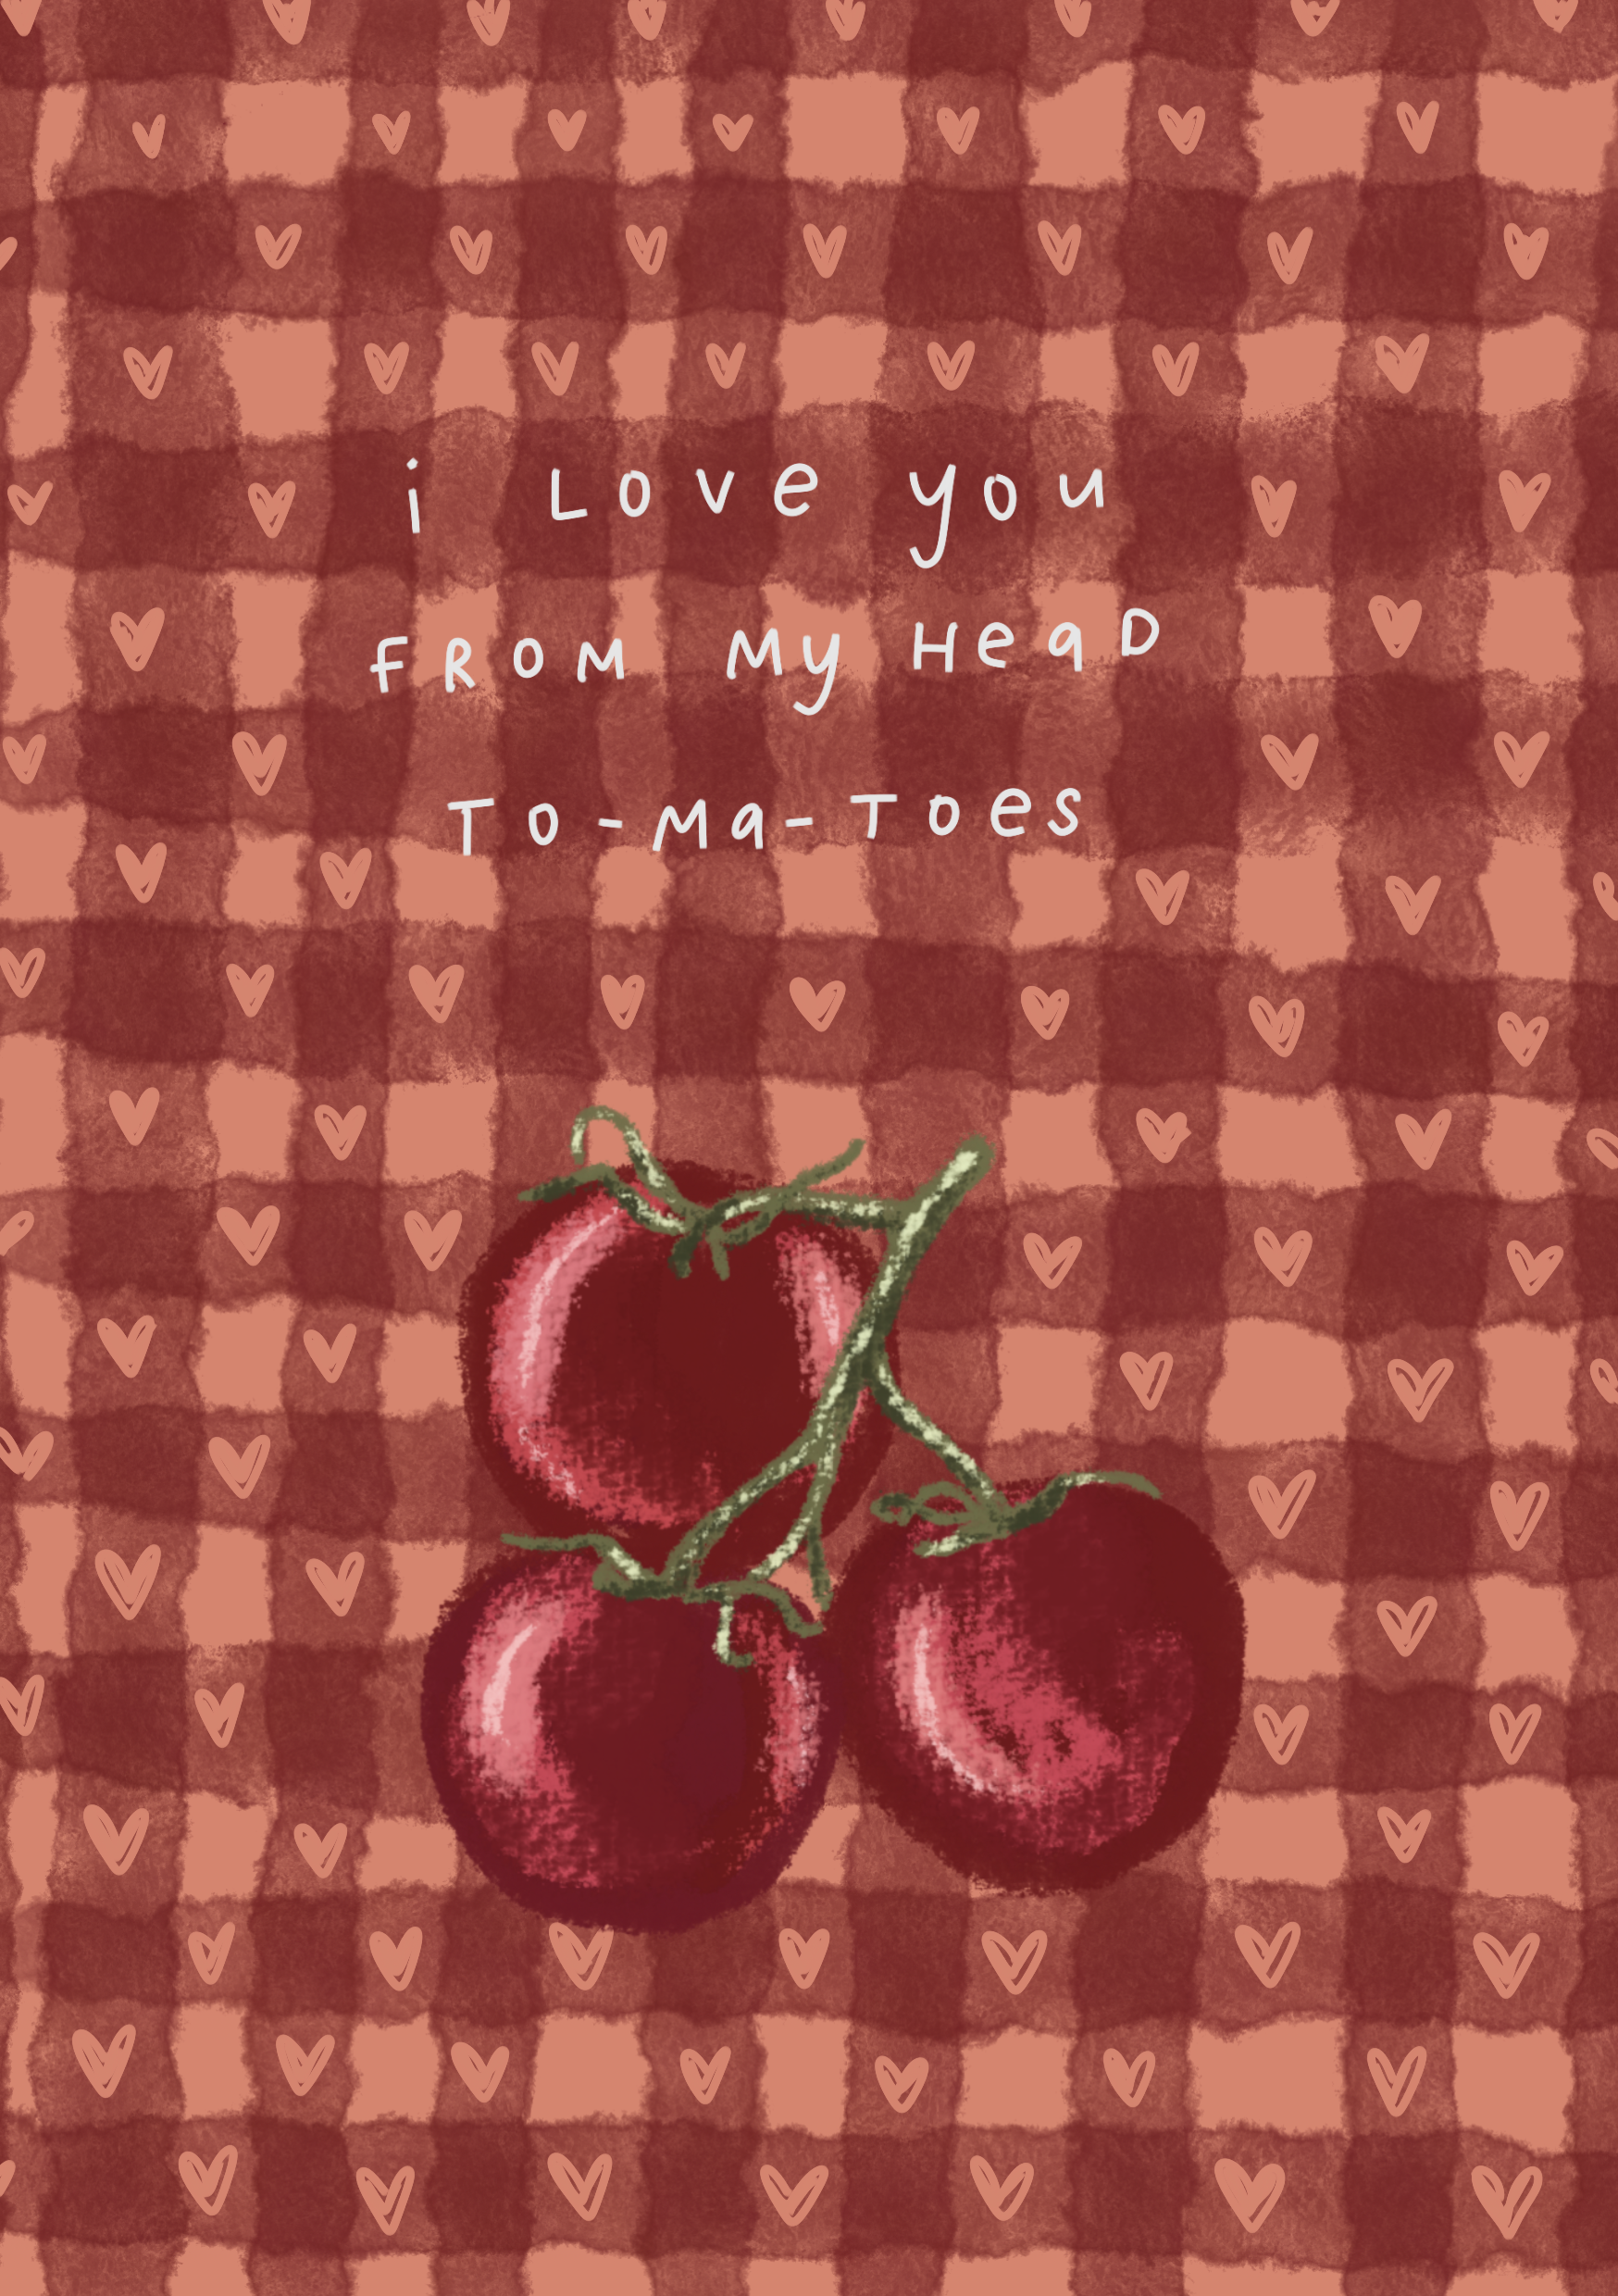 i Love you
FROM My Head
To-Ma-Toes